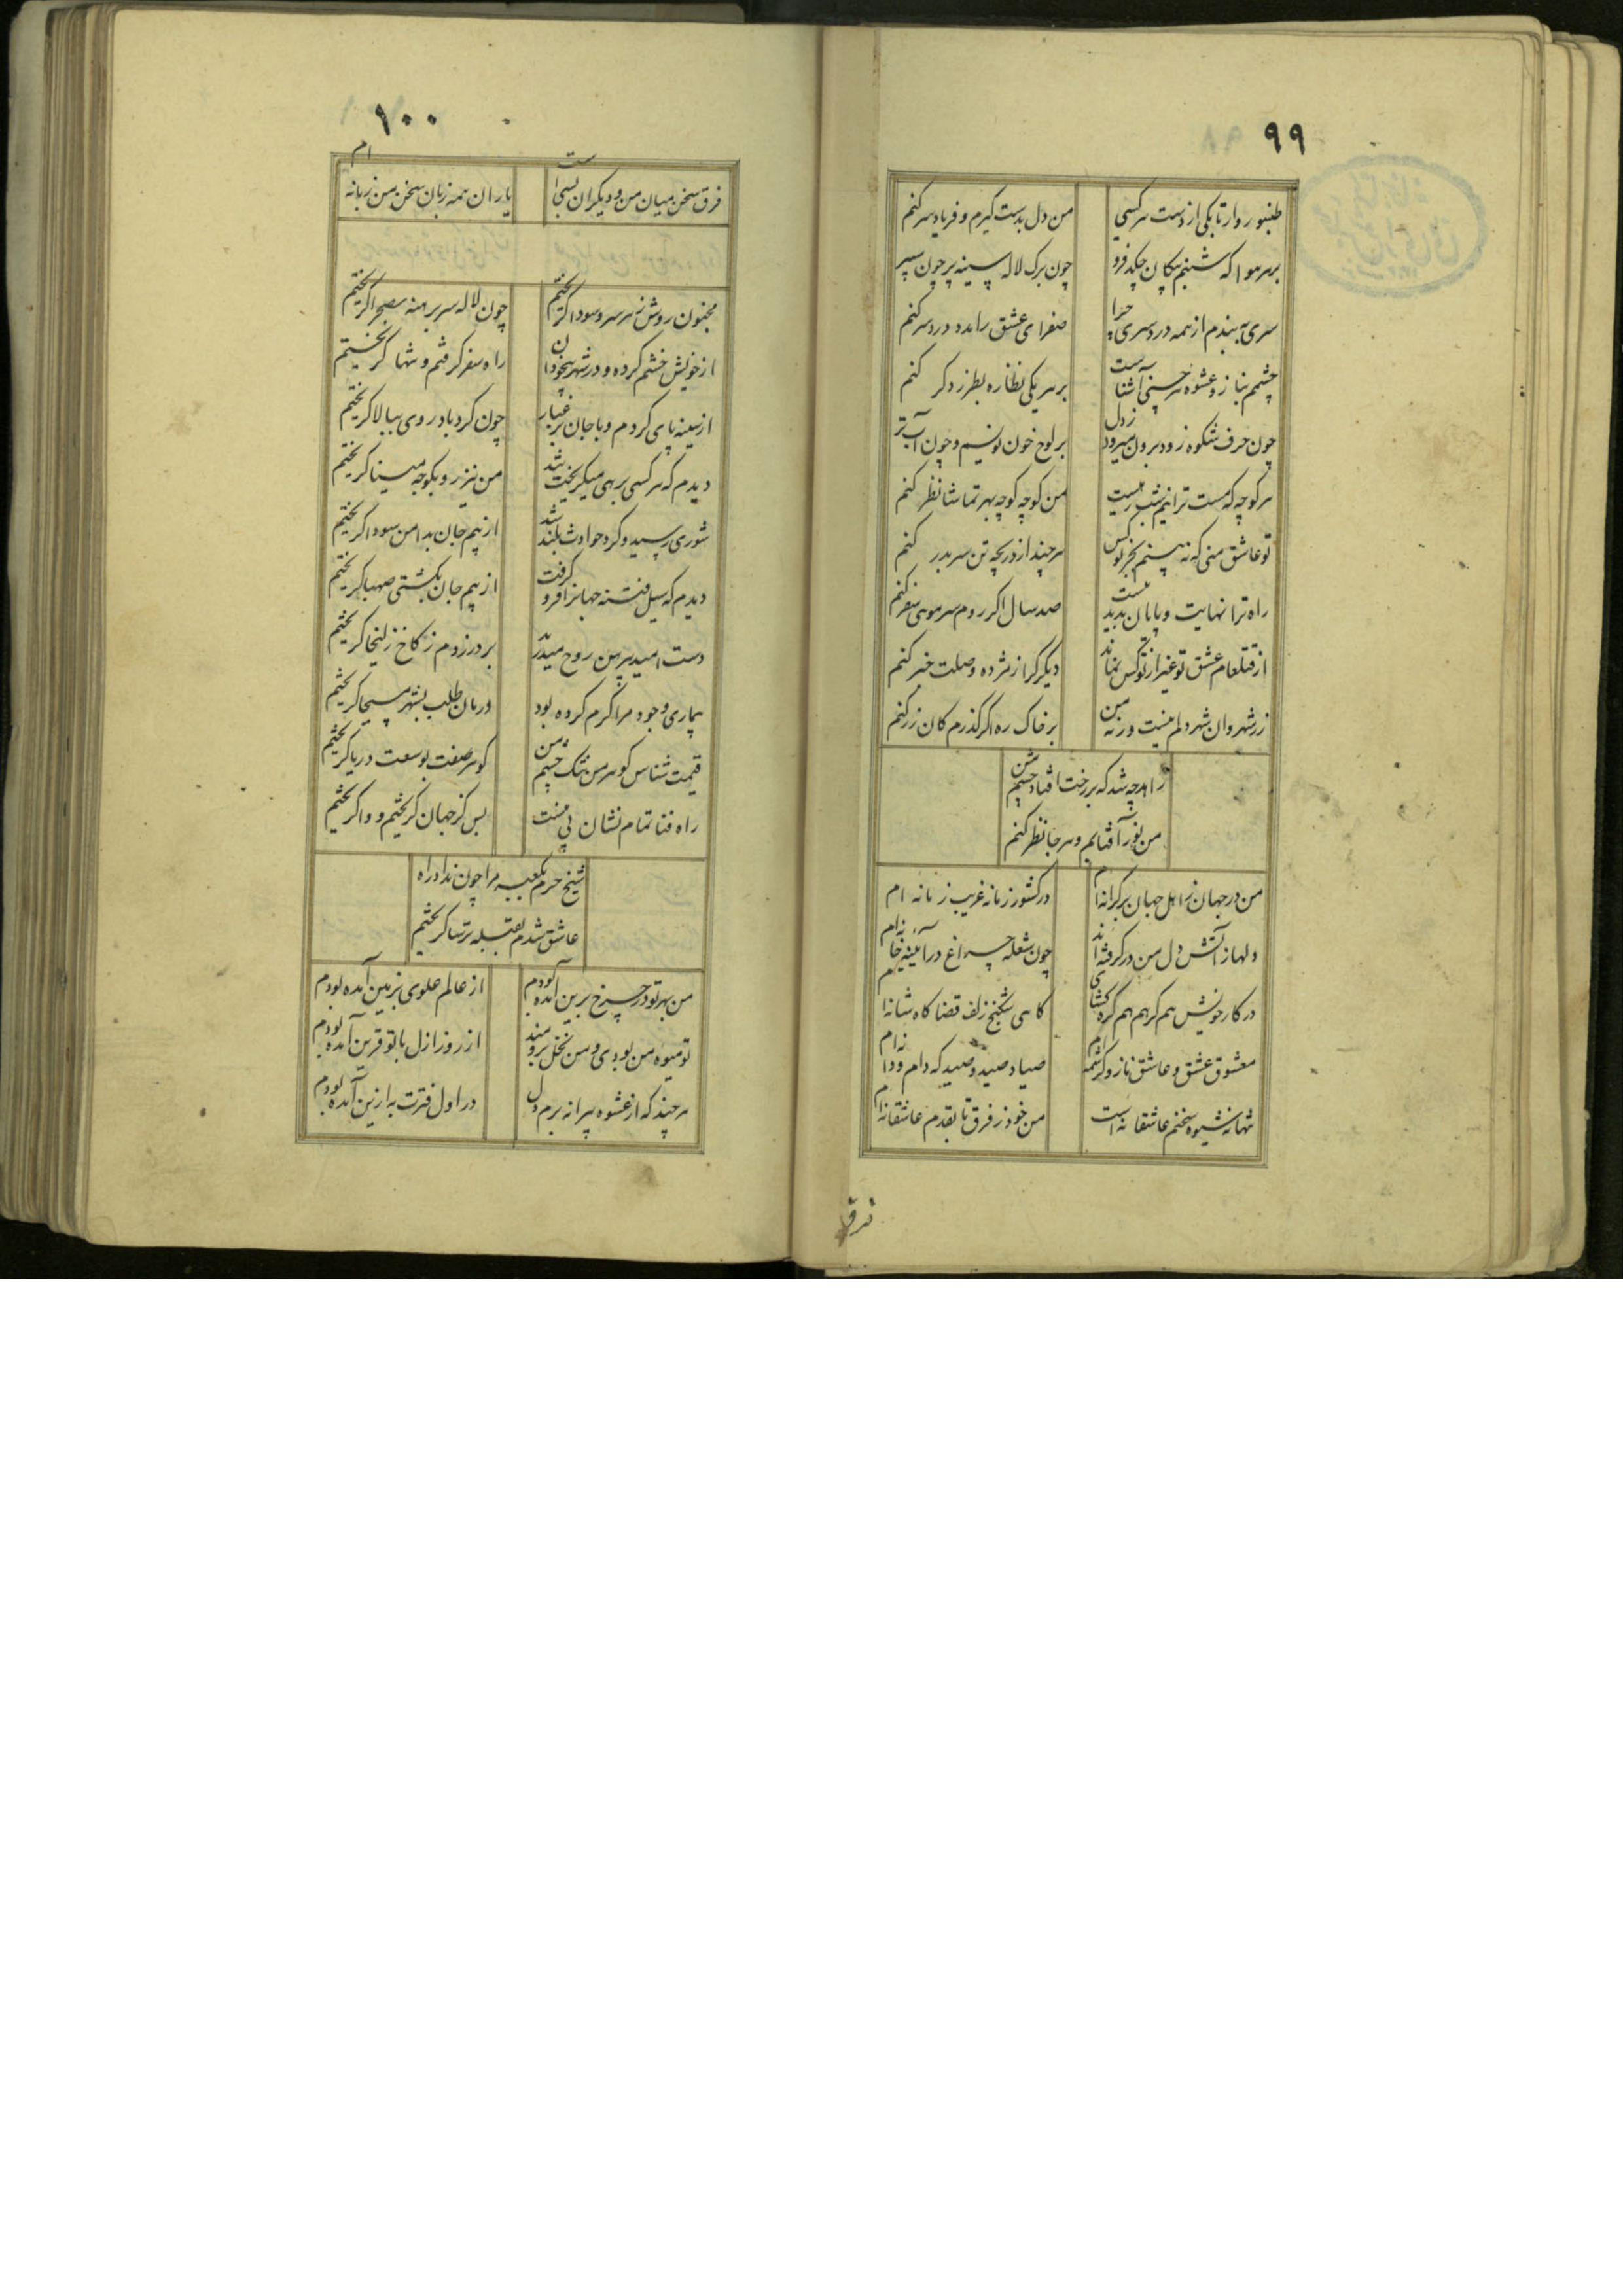 ۹۹
طنبور وار تا بکی از دست هر کسی
من دل بدست گیرم و فریاد سر کنم
بر هر هوا که شبنم پیکان چکد فرو
چون برک لاله سینه پر چون سپر کنم
سری نه بندم از همه دردسری چرا
صفرای عشق را مدد دردسر کنم
چشمم بناز و عشوه هر حسنی آشناست
بر هر یکی نظاره بطرز دکر کنم
چون حرف شکوه زود برون میرود ز دل
بر لوح خون نویسم و چون آب تر کنم
هر کوچه که هست ترا نیم شب رهیست
من کوچه کوچه بهر تماشا نظر کنم
تو عاشق منی که نه بینم بجز تو کس
هر چند از دریچه تن سر بدر کنم
راه ترا نهایت و پایان پدید نیست
صد سال اکر روم سر موی سفر کنم
از قتلعام عشق تو غیر از تو کس نماند
دیکر کرا ز مژده وصلت خبر کنم
زر شهروان شهر دلم نیست ورنه من
بر خاک ره اکر کذرم کان زر کنم
زاهد چه شد که بر رخت افتاد چشم من
من نور آفتابم و هر جا نظر کنم
من در جهان ز اهل جهان بر کرانه ام
در کشور زمانه غریب زمانه ام
دلها ز آتش دل من در کرفته اند
چون شعله چراغ در آیینه خانه ام
در کار خویش هم کرهم هم کره کشای
کاهی شکنج زلف قضا کاه شانه ام
معشوق عشق و عاشق ناز و کرشمه ام
صیاد صید و صید که دام و دانه ام
تنها نه شیوه سخنم عاشقانه است
من خود ز فرق تا بقدم عاشقانه ام
فرق
۱۰۰
فرق سخن میان من و دیکران بسی است
یاران همه زبان سخن من زبانه ام
مجنون روش ز هر سر و سودا کریختیم
چون لاله سر برهنه بصحرا کریختیم
از خویش خشم کرده و در شهر بیخودان
راه سفر کرفتم و تنها کریختیم
از سینه پای کردم و با جان پر غبار
چون کردباد روی ببالا کریختیم
دیدم که هر کسی برهی میکریخت شد
من نیز رو بکوچه مینا کریختیم
شوری رسید و کرد حوادث بلند شد
از بیم جان بدامن سودا کریختیم
دیدم که سیل فتنه جهانرا فرو کرفت
از بیم جان بکشتی صهبا کریختیم
دست امید پیرهن روح میدرید
بر در زدم ز کاخ زلیخا کریختیم
بیماری وجود مرا کرم کرده بود
درمان طلب بشهر مسیحا کریختیم
قیمت شناس کوهر من تنک چشم من
کوهر صفت بوسعت دریا کریختیم
راه فنا تمام نشان پی منست
بس کز جهان کریختیم و وا کریختیم
شیخ حرم بکعبه مرا چون نداد راه
عاشق شدم بقبله ترسا کریختیم
من بهر تو در چرخ برین آمده بودم
از عالم علوی بزمین آمده بودم
تو میوه من بودی و من نخل برومند
از روز ازل با تو قرین آمده بودم
هر چند که از عشوه پیرانه برم دل
در اول فترت به ازین آمده بودم